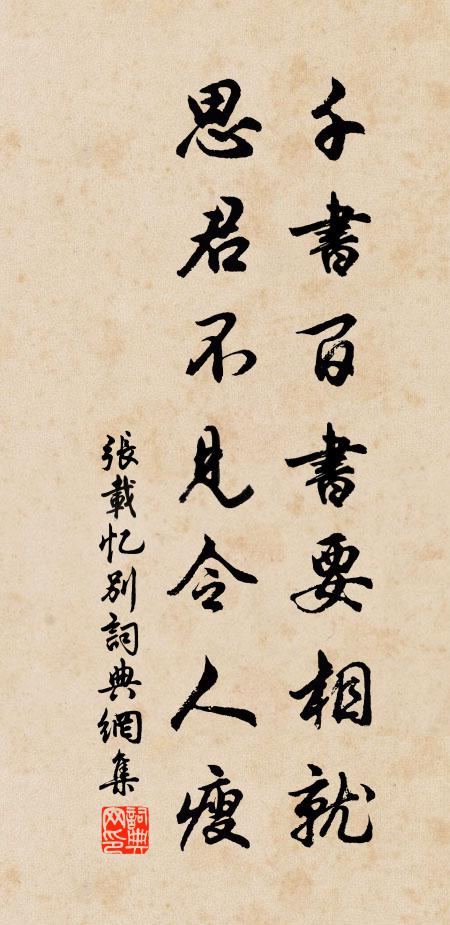 千書百書要相就
思君不見令人瘦
張載忆别詞典網集
詞典
网印